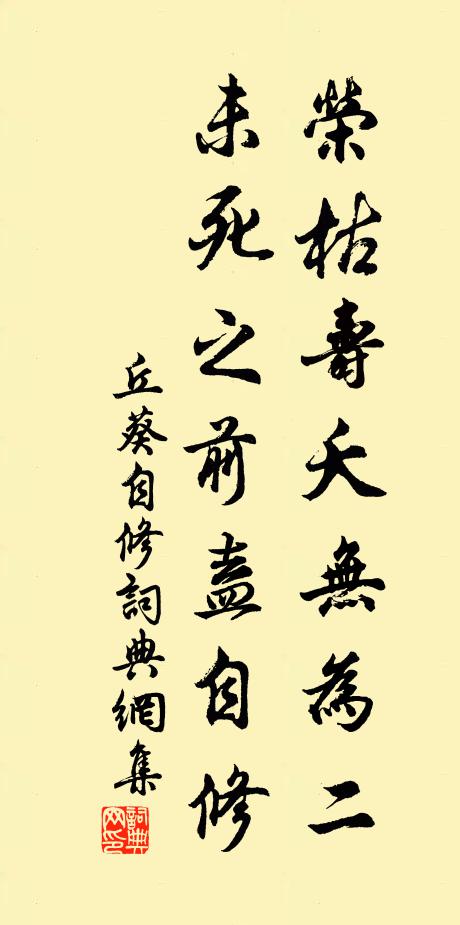 榮枯壽夭無為二
未死之前盍自修
丘葵自修詞典網集
詞典网印